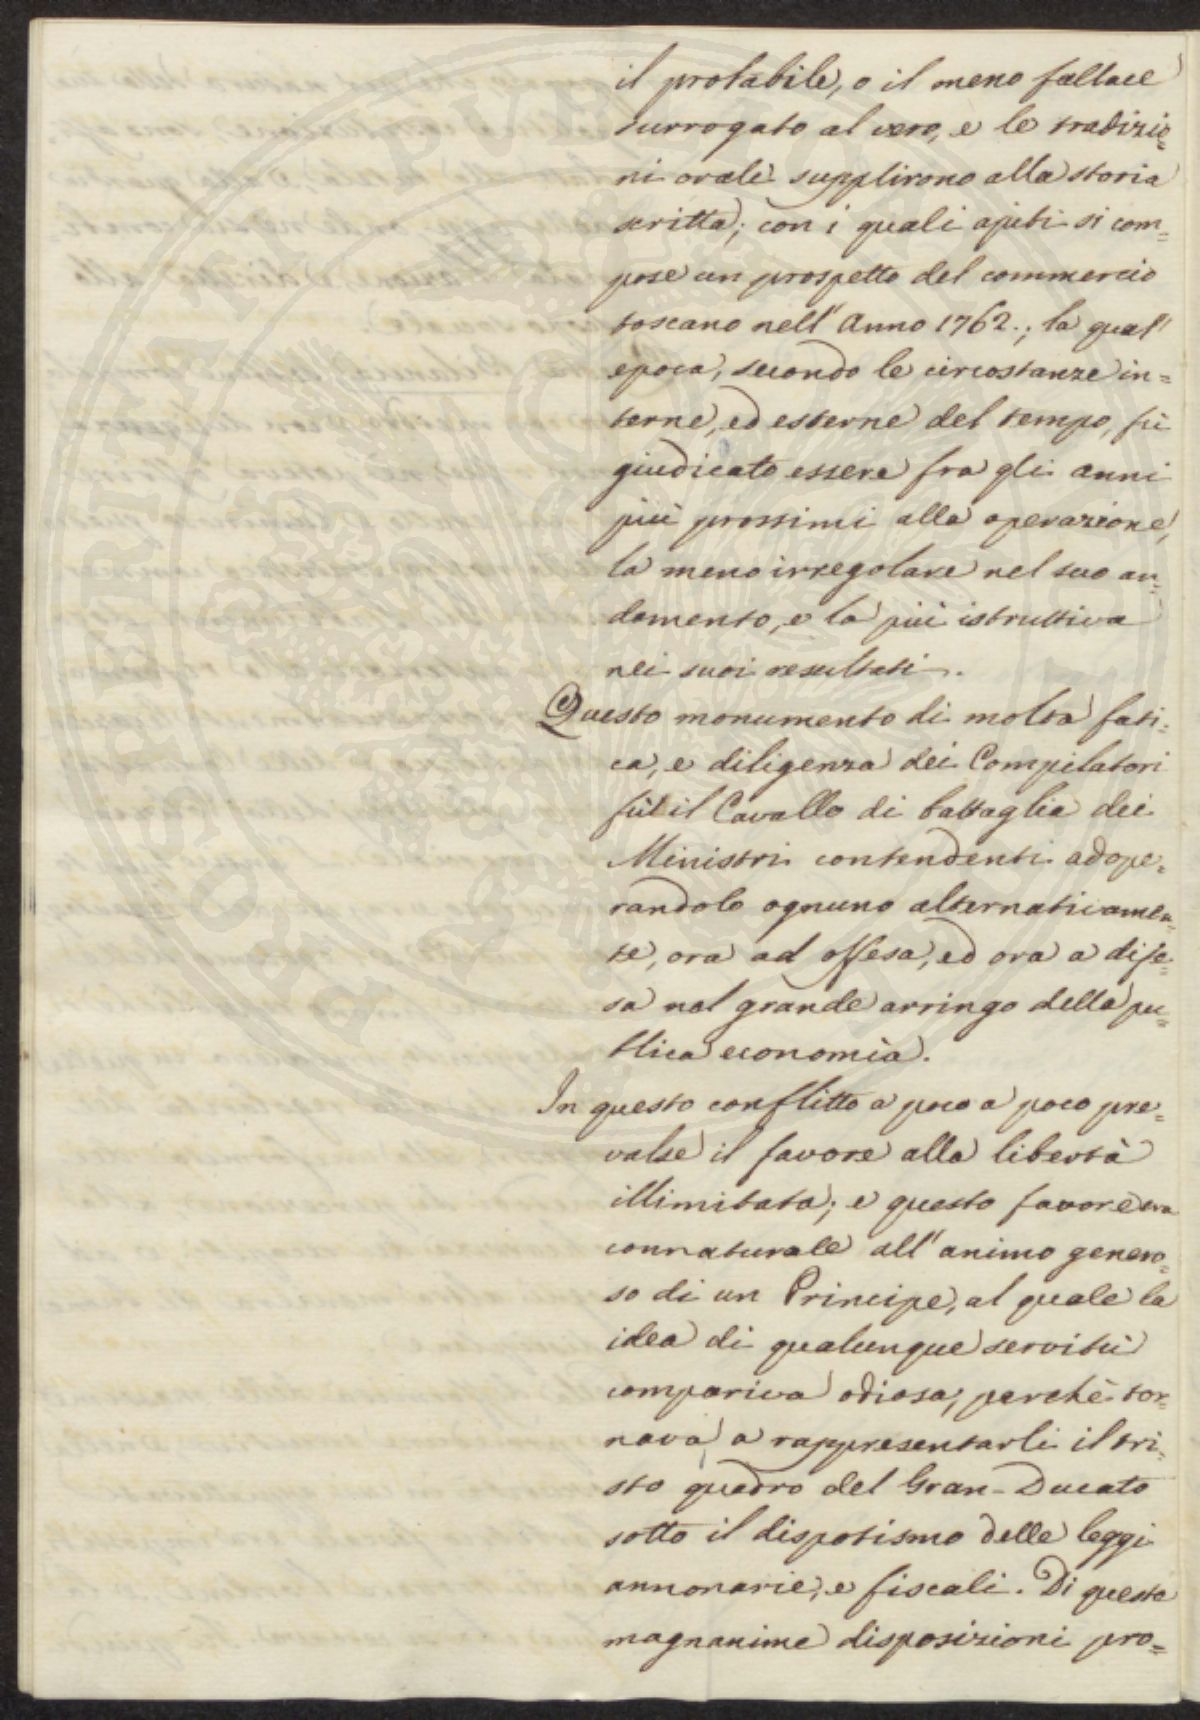 il probabile, o il meno fallace
surrogato al vero, e le tradizio=
ni orale supplirono alla storia
scritta; con i quali ajuti si com=
pose un prospetto del commercio
toscano nell' Anno 1762.; la qual'
epoca, secondo le circostanze in=
terne, ed esterne del tempo, fù
giudicato essere fra gli anni
più prossimi alla operazione,
la meno irregolare nel suo an=
damento, e la più istruttiva
nei suoi resultati.
Questo monumento di molta fati=
ca, e diligenza dei Compilatori
fù il Cavallo di battaglia dei
Ministri contendenti adope=
randolo ognuno alternativamen=
te, ora ad offesa, ed ora a dife=
sa nel grande arringo della pu=
blica economia.
In questo conflitto a poco a poco pre=
valse il favore alla libertà
illimitata; e questo favore era
connaturale all' animo genero=
so di un Principe, al quale la
idea di qualunque servitù
compariva odiosa, perchè tor=
nava a rappresentarli il tri=
sto quadro del Gran-Ducato
sotto il dispotismo delle leggi
annonarie, e fiscali. Di queste
magnanime disposizioni pro=